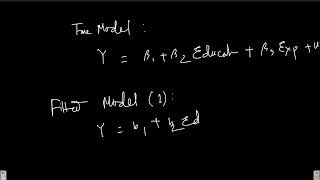 True Model :
Y = β₁ + β₂ Educat + β₃ Exp + u
Fitted Model (1) :
Y = b₁ + b₂ Ed